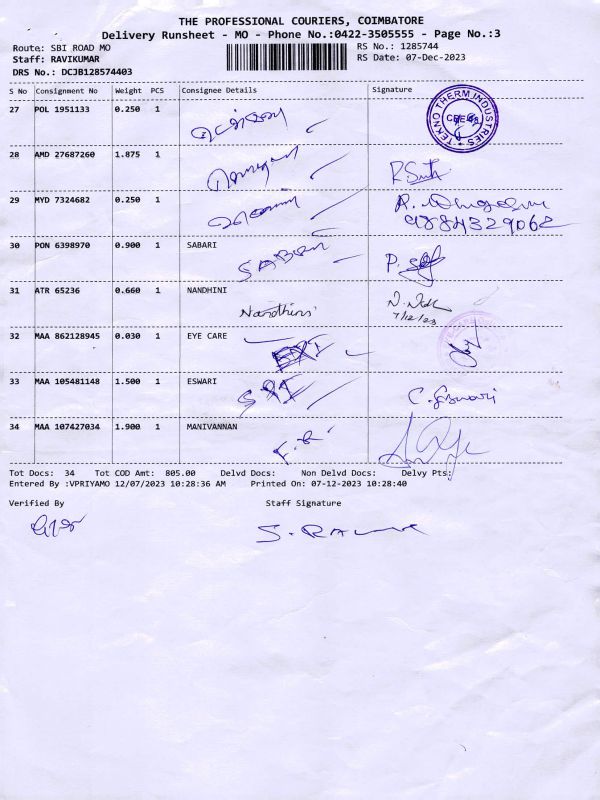 THE PROFESSIONAL COURIERS, COIMBATORE
Delivery Runsheet - MO - Phone No.:0422-3505555 - Page No.:3
Route: SBI ROAD MO RS No.: 1285744
Staff: RAVIKUMAR RS Date: 07-Dec-2023
DRS No.: DCJB128574403
S No Consignment No Weight PCS Consignee Details Signature
27 POL 1951133 0.250 1
TEKNO THERM INDUSTRIES
28 AMD 27687260 1.875 1
29 MYD 7324682 0.250 1
9884329062
30 PON 6398970 0.900 1 SABARI
SABARI
31 ATR 65236 0.660 1 NANDHINI
Nandhini
7/12/23
32 MAA 862128945 0.030 1 EYE CARE
33 MAA 105481148 1.500 1 ESWARI
C. Eswari
34 MAA 107427034 1.900 1 MANIVANNAN
Tot Docs: 34 Tot COD Amt: 805.00 Delvd Docs: Non Delvd Docs: Delvy Pts:
Entered By :VPRIYAMO 12/07/2023 10:28:36 AM Printed On: 07-12-2023 10:28:40
Verified By Staff Signature